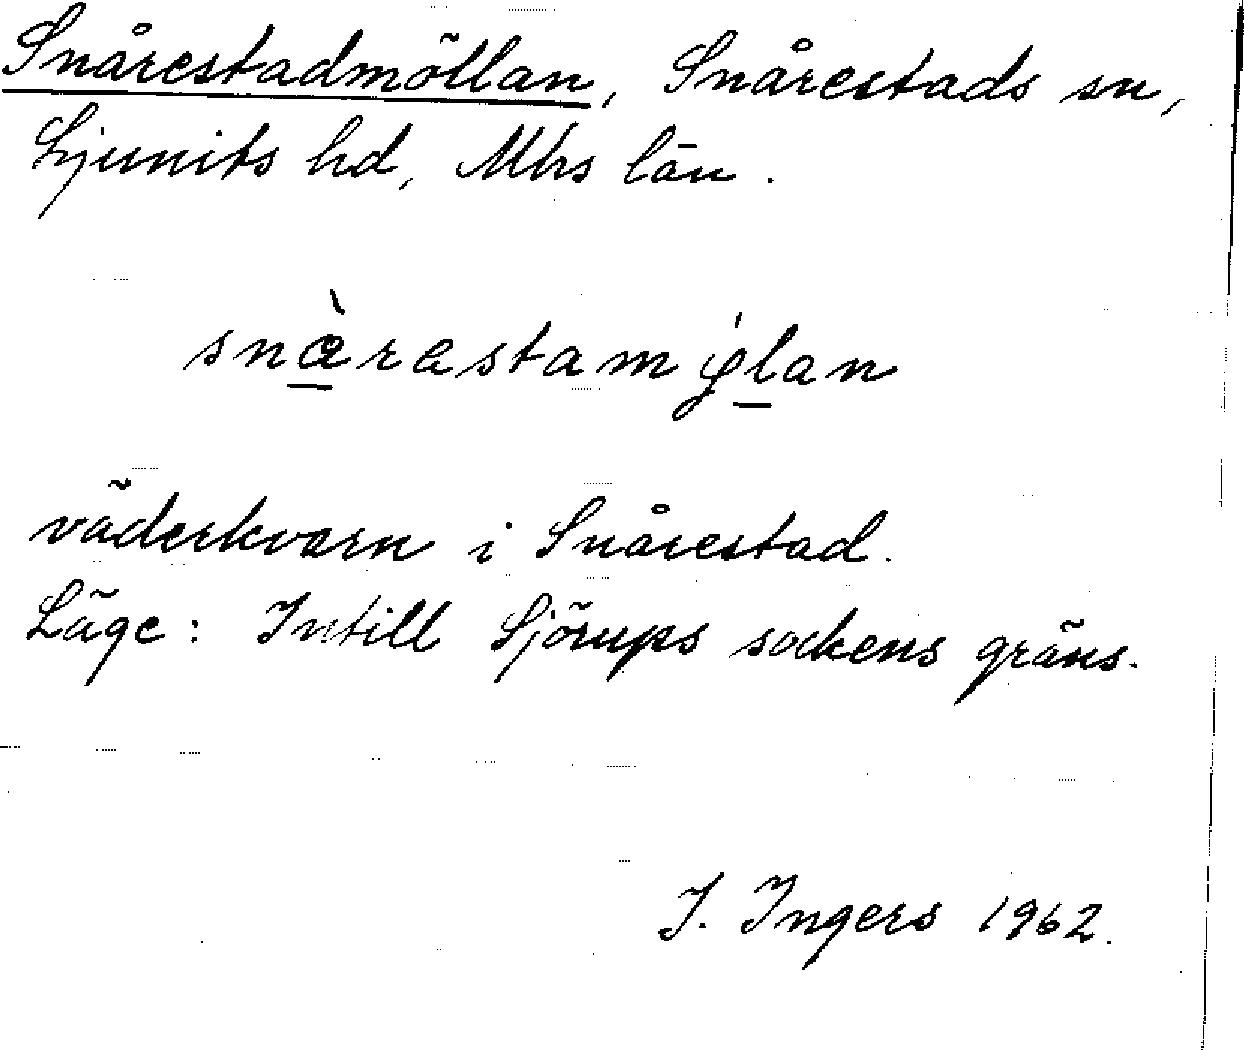 Snårestadmöllan, Snårestads sn,
Ljunits hd, Mhs län.
väderkvarn i Snårestad.
Läge: Intill Sjörups sockens gräns.
I. Ingers 1962.